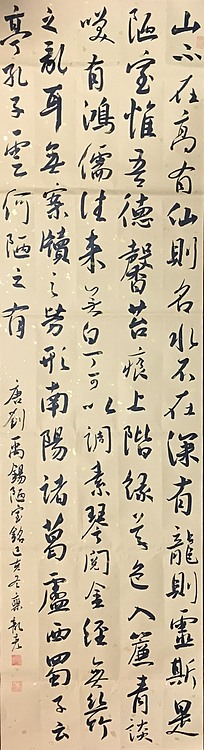 山不在高有仙則名水不在深有龍則靈斯是
陋室惟吾德馨苔痕上階綠草色入簾青談
笑有鴻儒往来無白丁可以調素琴閱金經無絲竹
之亂耳無案牘之勞形南陽諸葛廬西蜀子云
亭孔子雲何陋之有
唐劉禹錫陋室銘己亥冬